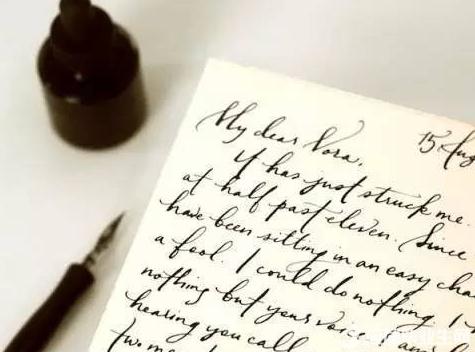 My dear Nora, 15 Aug
It has just struck me.
at half past eleven. Since
have been sitting in an easy cha
a fool. I could do nothing. I
nothing but your voi
hearing you call